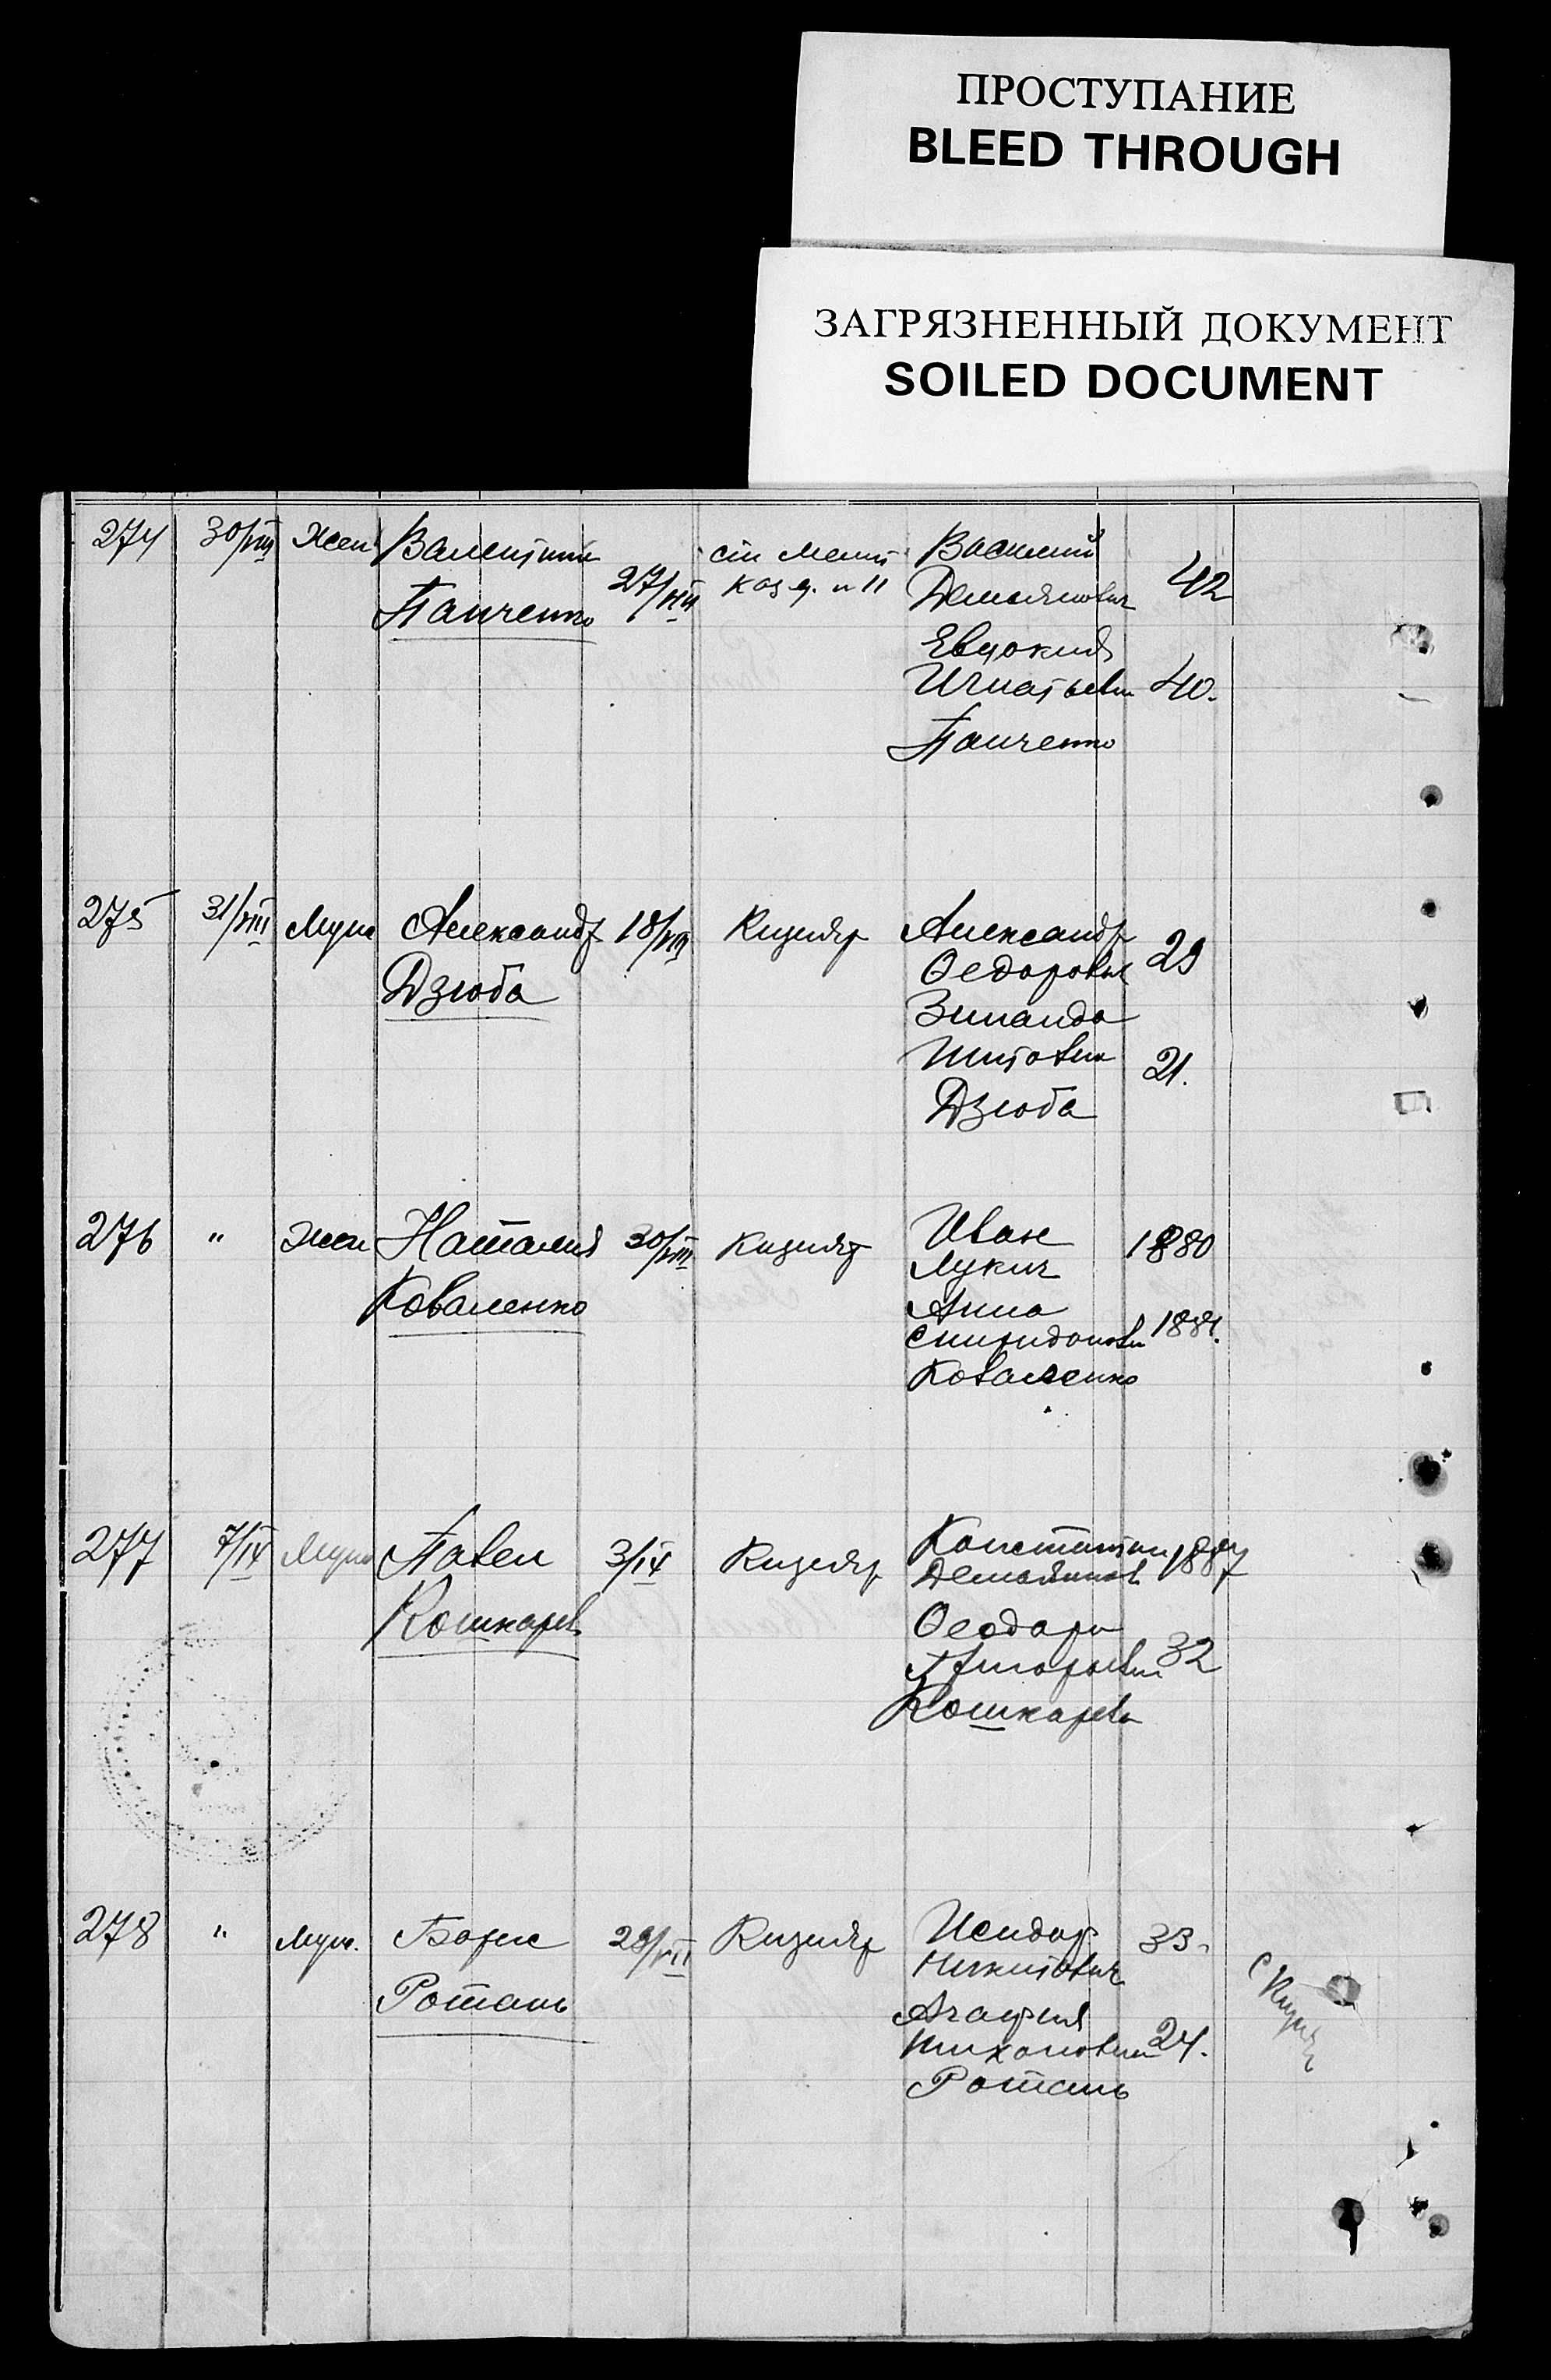 ПРОСТУПАНИЕ
BLEED THROUGH
ЗАГРЯЗНЕННЫЙ ДОКУМЕНТ
SOILED DOCUMENT
274 30/VIII Жен Валентина 27/VIII ст Мелит Василий 42
Панченко каз д. н 11 Демьянович
Евдокия
Игнатьевн 40.
Панченко
275 31/VIII Муж Александр 18/VIII Кизияр Александр 29
Дзюба Федорович
Зинаида
Титовна 21.
Дзюба
276 " Жен Наталия 30/VIII Кизияр Иван 1880
Коваленко Лукич
Анна
Спиридоновн 1881.
Коваленко
277 7/IX Муж Павел 3/IX Кизияр Константин 1887
Кошкарев Демьянов
Феодора
Григорьевн 32
Кошкарева
278 " муж. Борис 28/VII Кизияр Исидор 33.
Ротань Никитович
Агафия
Тихоновн 24.
Ротань
с Кизияр